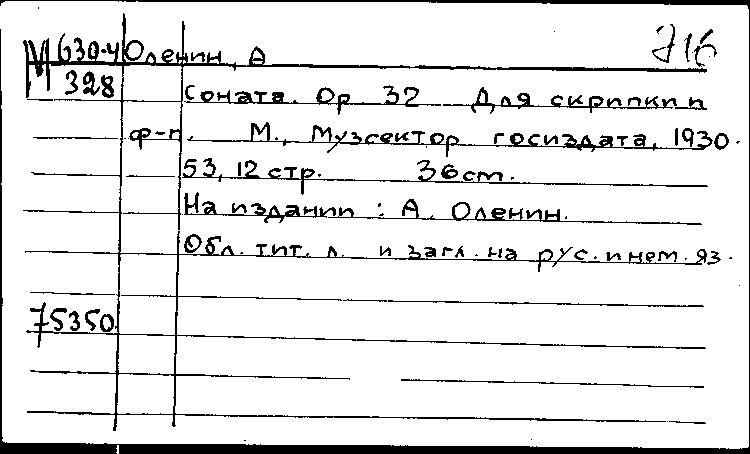 М 630-4 Оленин, А 716
328
Соната. Ор 32 Для скрипки и
ф-п. М., Музсектор госиздата, 1930.
53, 12 стр. 36 см.
На издании: А. Оленин.
Обл. тит. л. и загл. на рус. и нем. яз.
75350